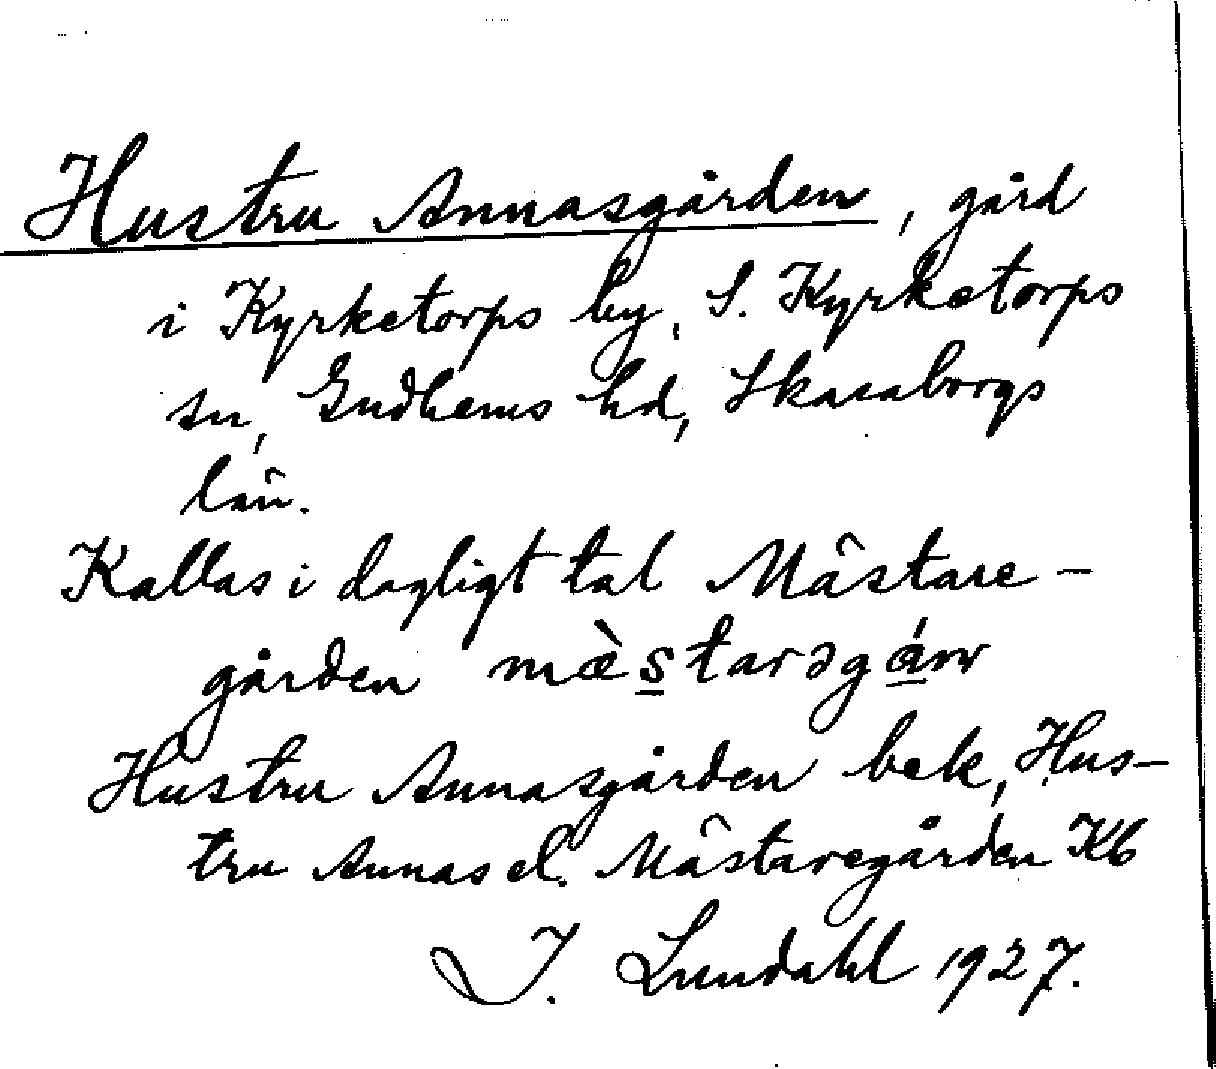 Hustru Annasgården, gård
i Kyrketorps by, S. Kyrketorps
sn, Gudhems hd, Skaraborgs
län.
Kallas i dagligt tal Mästare-
gården mæ̀s̲tarəgá̲rn
Hustru Annasgården bek, Hus-
tru Annas el. Mästaregården Kb
I. Lundahl 1927.